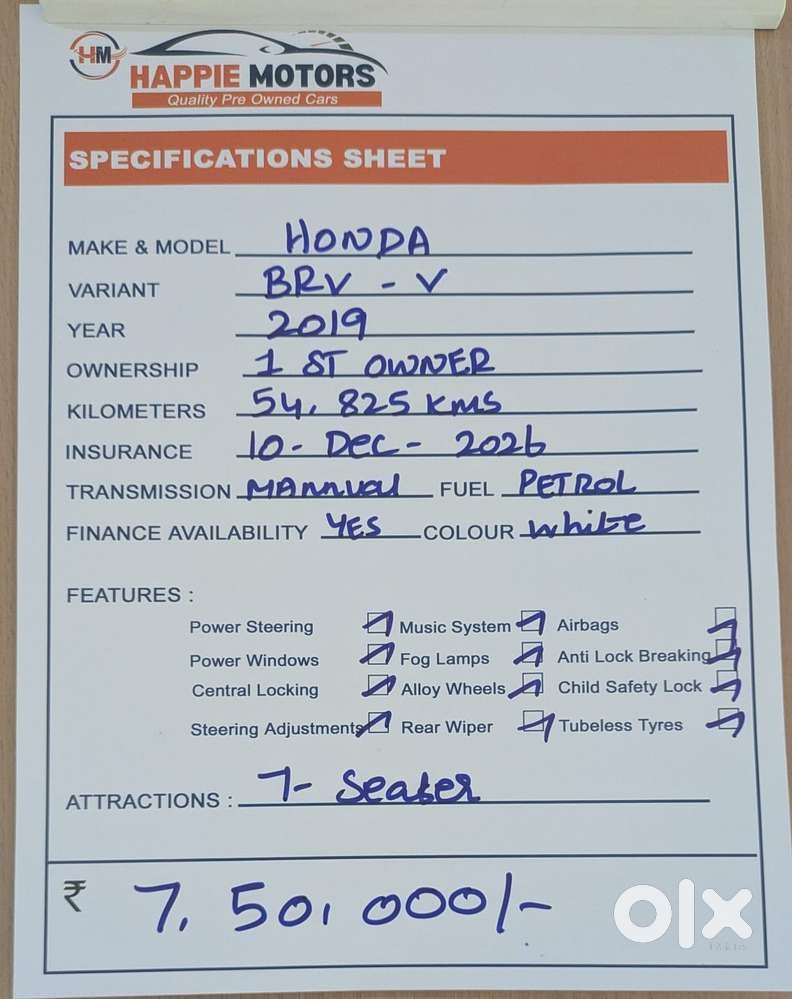 HM
HAPPIE MOTORS
Quality Pre Owned Cars
SPECIFICATIONS SHEET
MAKE & MODEL HONDA
VARIANT BRV - V
YEAR 2019
OWNERSHIP 1 ST OWNER
KILOMETERS 54, 825 KMS
INSURANCE 10 - Dec - 2026
TRANSMISSION MANNUAL FUEL PETROL
FINANCE AVAILABILITY YES COLOUR White
FEATURES :
Power Steering Music System Airbags
Power Windows Fog Lamps Anti Lock Breaking
Central Locking Alloy Wheels Child Safety Lock
Steering Adjustments Rear Wiper Tubeless Tyres
ATTRACTIONS : 7- Seater
₹ 7, 50, 000/-
olx